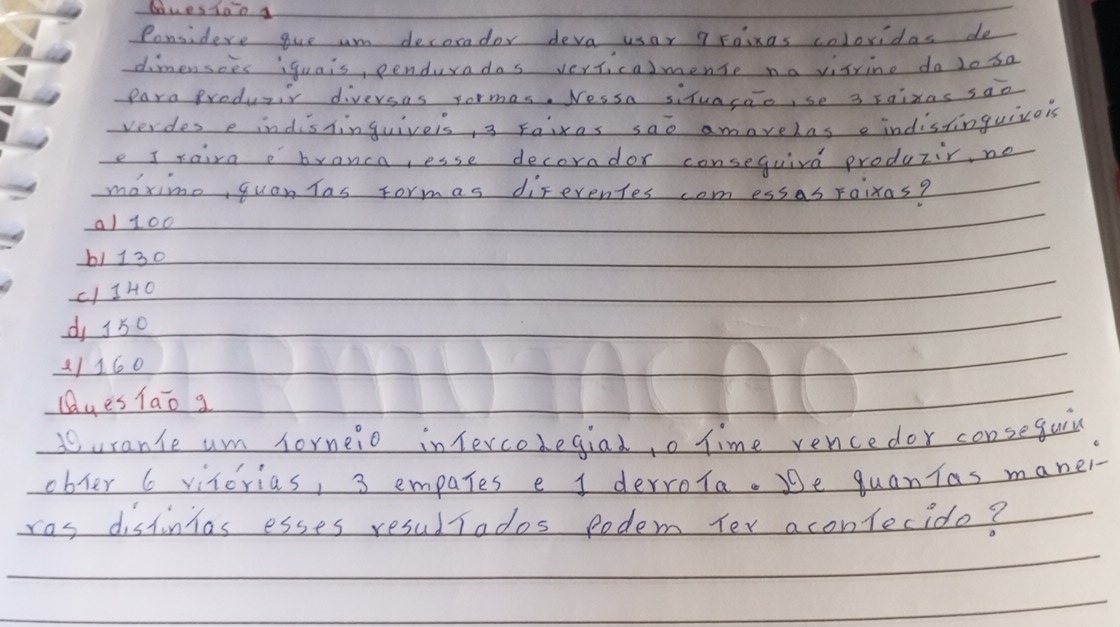 Questão 1
Considere que um decorador deva usar 7 faixas coloridas de
dimensões iguais, penduradas verticalmente na vitrine da loja
para produzir diversas formas. Nessa situação, se 3 faixas são
verdes e indistinguiveis, 3 faixas são amarelas e indistinguiveis
e 1 faixa é branca, esse decorador conseguirá produzir, no
máximo, quantas formas diferentes com essas faixas?
a) 100
b) 130
c) 140
d) 150
e) 160
PERMUTAÇÃO
Questão 2
Durante um torneio intercolegial, o time vencedor conseguiu
obter 6 vitórias, 3 empates e 1 derrota. De quantas manei-
ras distintas esses resultados podem ter acontecido?